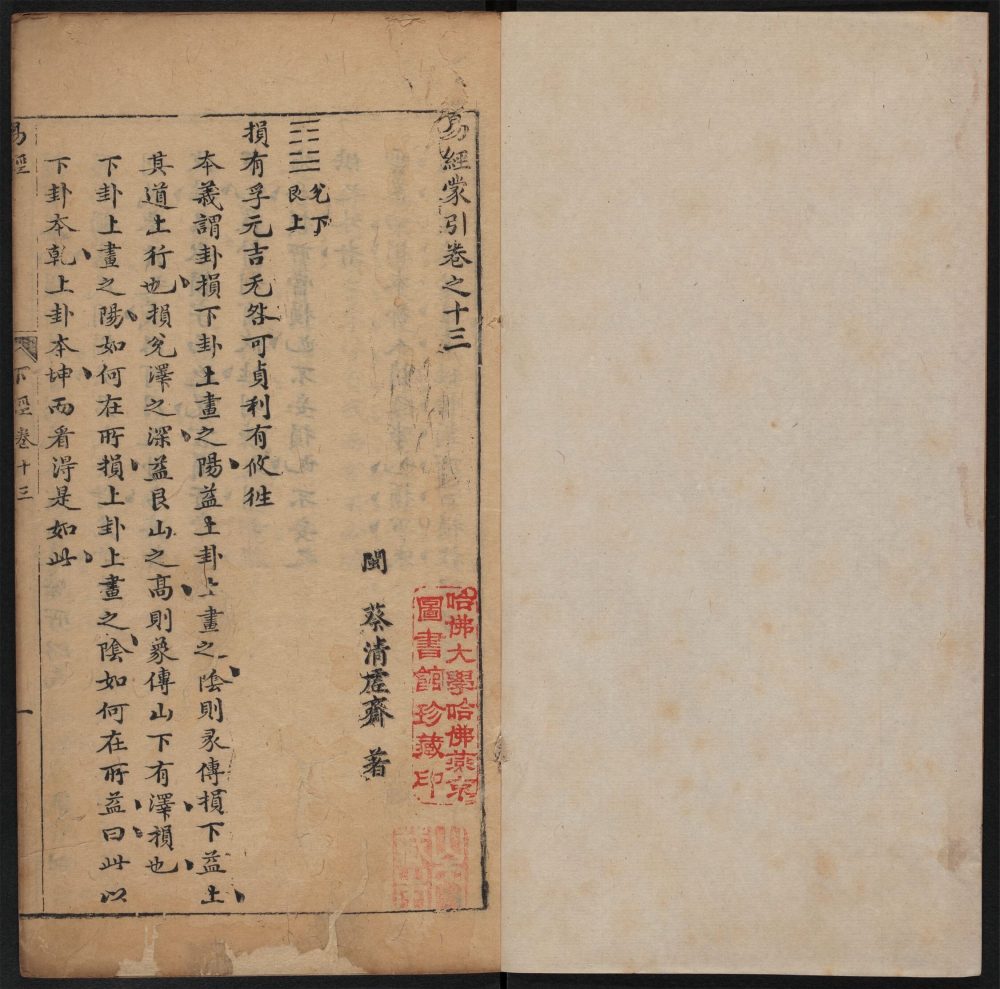 易經蒙引卷之十三
閩 蔡清虛齋 著
哈佛大學哈佛燕京
圖書館珍藏印
䷨ 兌下
艮上
損有孚元吉无咎可貞利有攸往
本義謂卦損下卦上畫之陽益上卦上畫之陰則彖傳損下益上
其道上行也損兌澤之深益艮山之高則象傳山下有澤損也
下卦上畫之陽如何在所損上卦上畫之陰如何在所益曰此以
下卦本乾上卦本坤而看得是如此
易經 下經卷十三 一